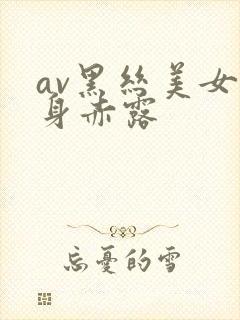 av黑丝美女
身赤露
忘憂的雪